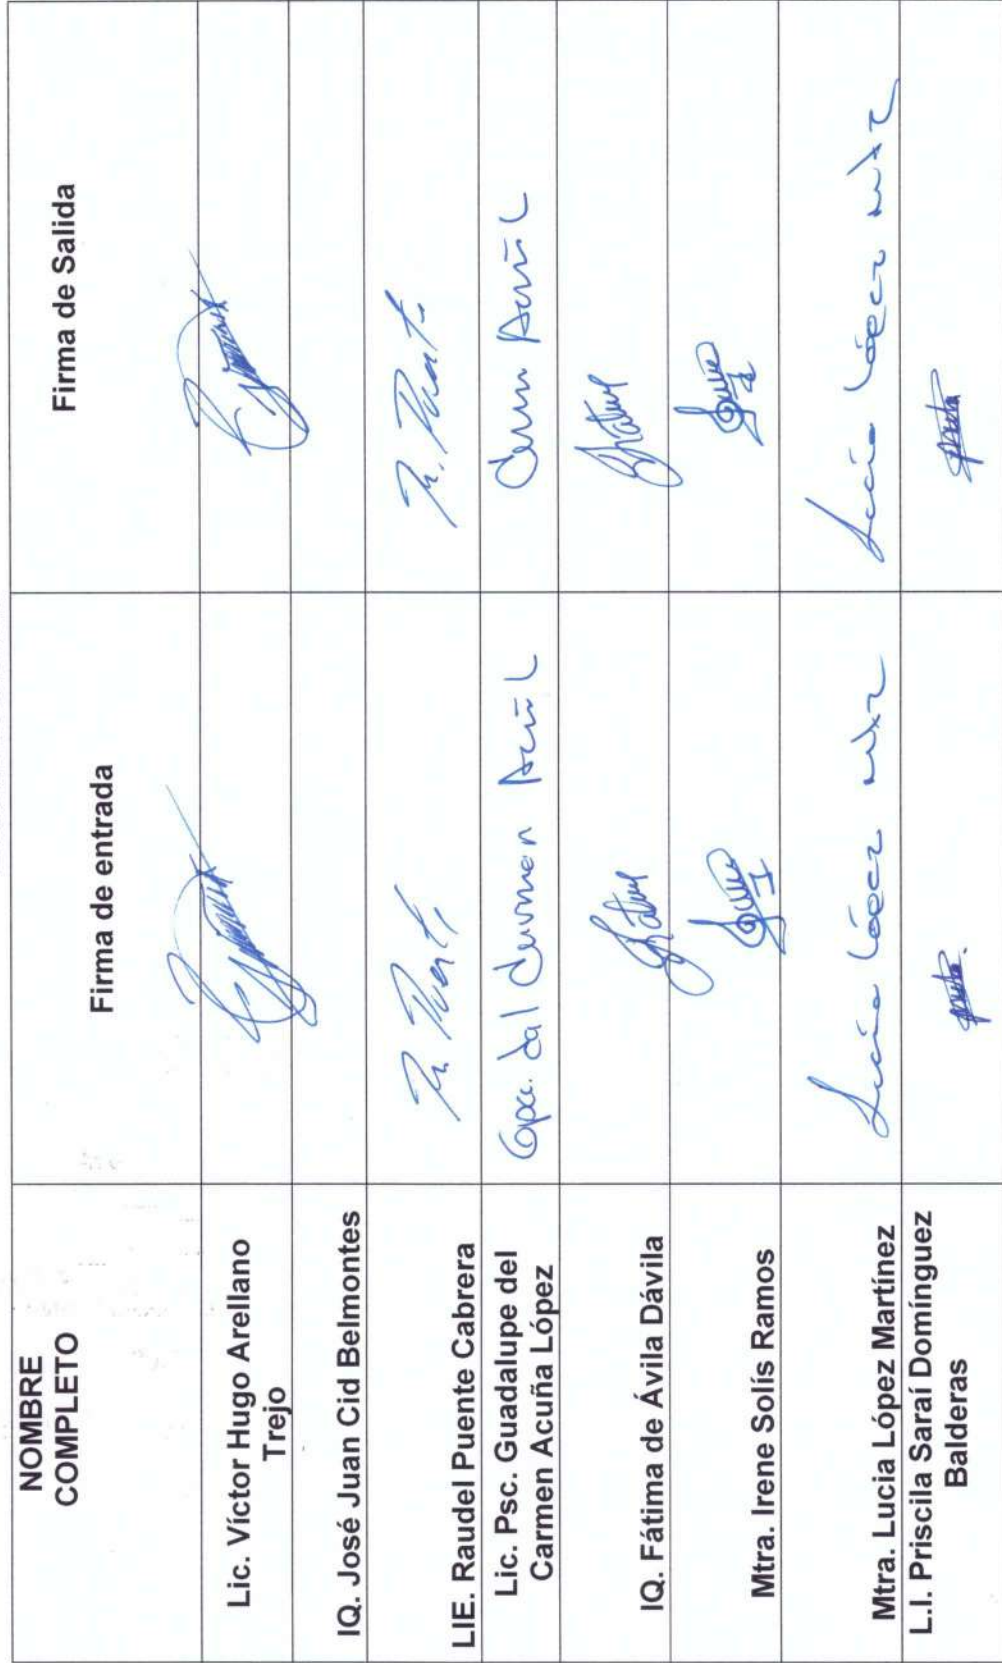 NOMBRE
COMPLETO
Firma de entrada
Firma de Salida
Lic. Víctor Hugo Arellano
Trejo
IQ. José Juan Cid Belmontes
LIE. Raudel Puente Cabrera
R. Puente
R. Puente
Lic. Psc. Guadalupe del
Carmen Acuña López
Gpa. del Carmen Acuña L
Carmen Acuña L
IQ. Fátima de Ávila Dávila
Mtra. Irene Solís Ramos
Mtra. Lucia López Martínez
Lucía López Mtz
Lucía López Mtz
L.I. Priscila Saraí Domínguez
Balderas